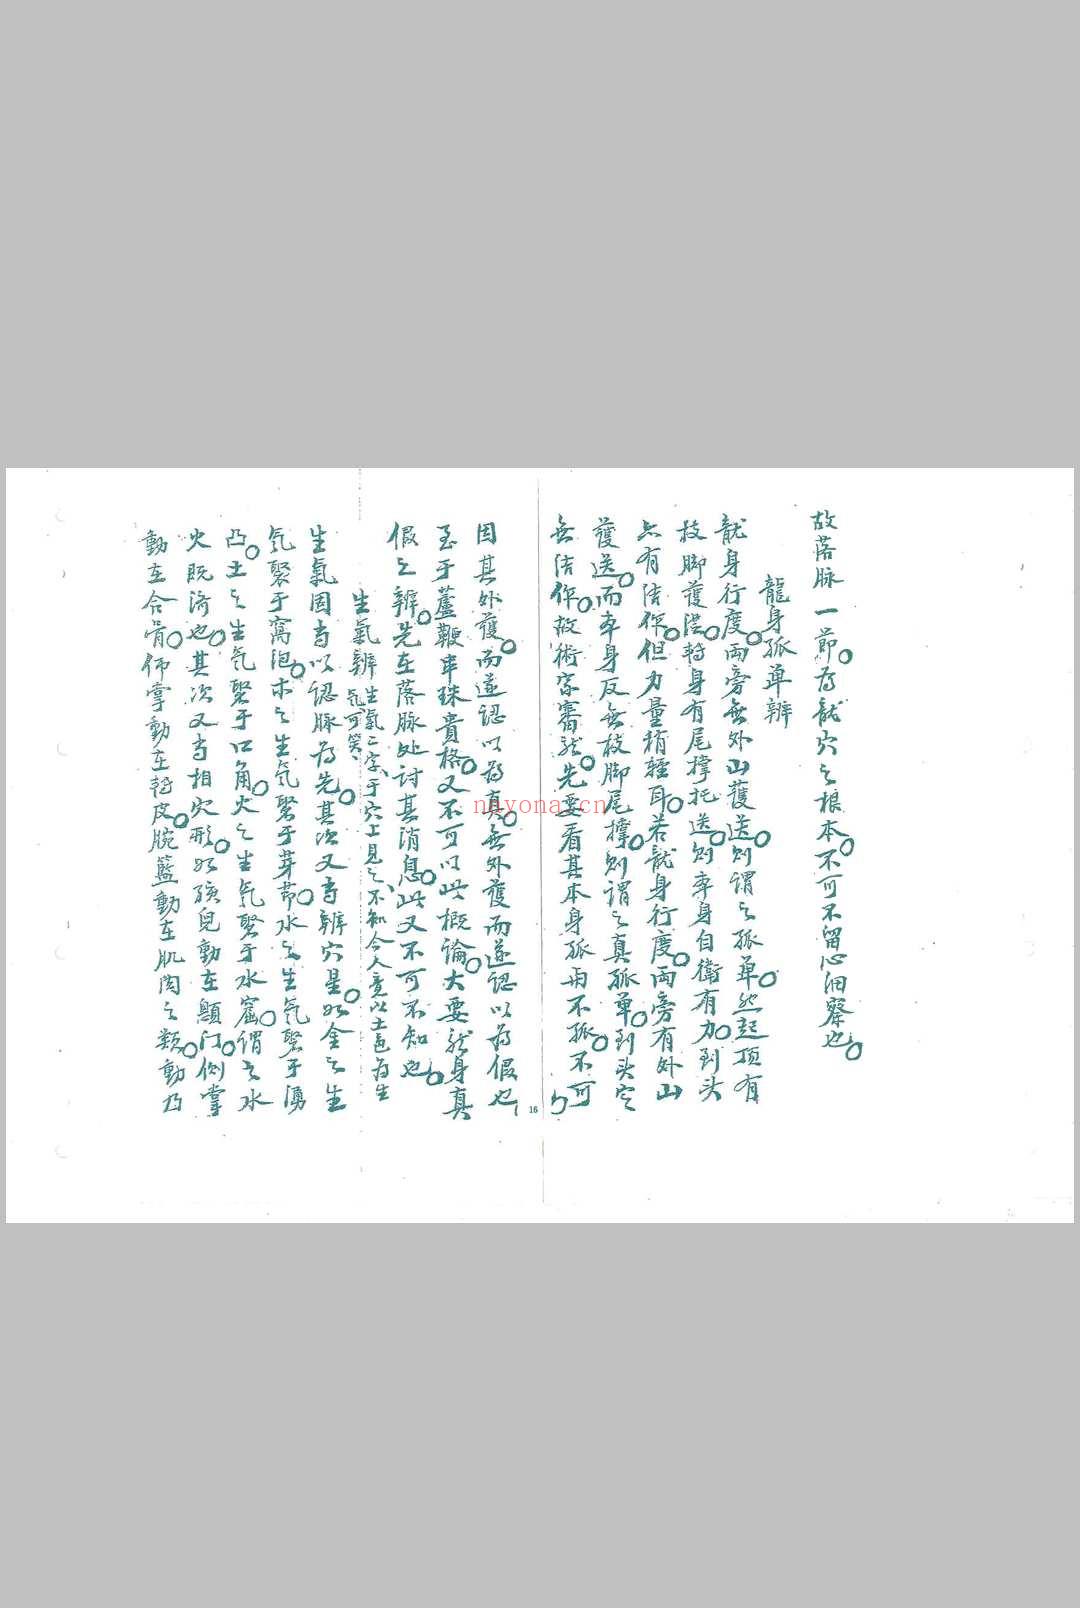 故落脉一節。为龍穴之根本。不可不留心洄察也。
龍身孤单辨
龍身行度。両旁無外山護送。则谓之孤单。然起頂有
枝脚護從。轉身有尾撑托送。则本身自衛有力。到头
亦有结作。但力量稍輕耳。若龍身行度。両旁有外山
護送。而本身反無枝脚尾撑。则谓之真孤单。到头定
無结作。故術家審龍。先要看其本身孤与不孤。不可
因其外護。而遂認以为真。無外護而遂認以为假也。
至于蘆鞭串珠貴格。又不可以此概論。大要龍身真
假之辨。先在落脉处讨其消息。此又不可不知也。
生氣辨 生氣二字、于穴上見之、不知今人竟以土色为生
气、可笑、
生氣固当以認脉为先。其次又当辨穴星。如金之生
气聚于窩泡。木之生気聚于芽節。水之生気聚于湧
凸。土之生気聚于口角。火之生気聚于水窟。谓之水
火既济也。其次又当相穴形。如孩兒動在顖门。側掌
動在合骨。仰掌動在轉皮。腕籃動在肌肉之類。動乃
16
nayona.cn